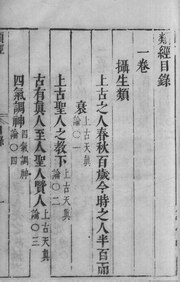 類經目錄
一卷
攝生類
上古之人春秋百歲今時之人半百而
衰 上古天真論〇一
上古聖人之教下 上古天真論〇二
古有真人至人聖人賢人 上古天真論〇三
四氣調神 四氣調神論〇四